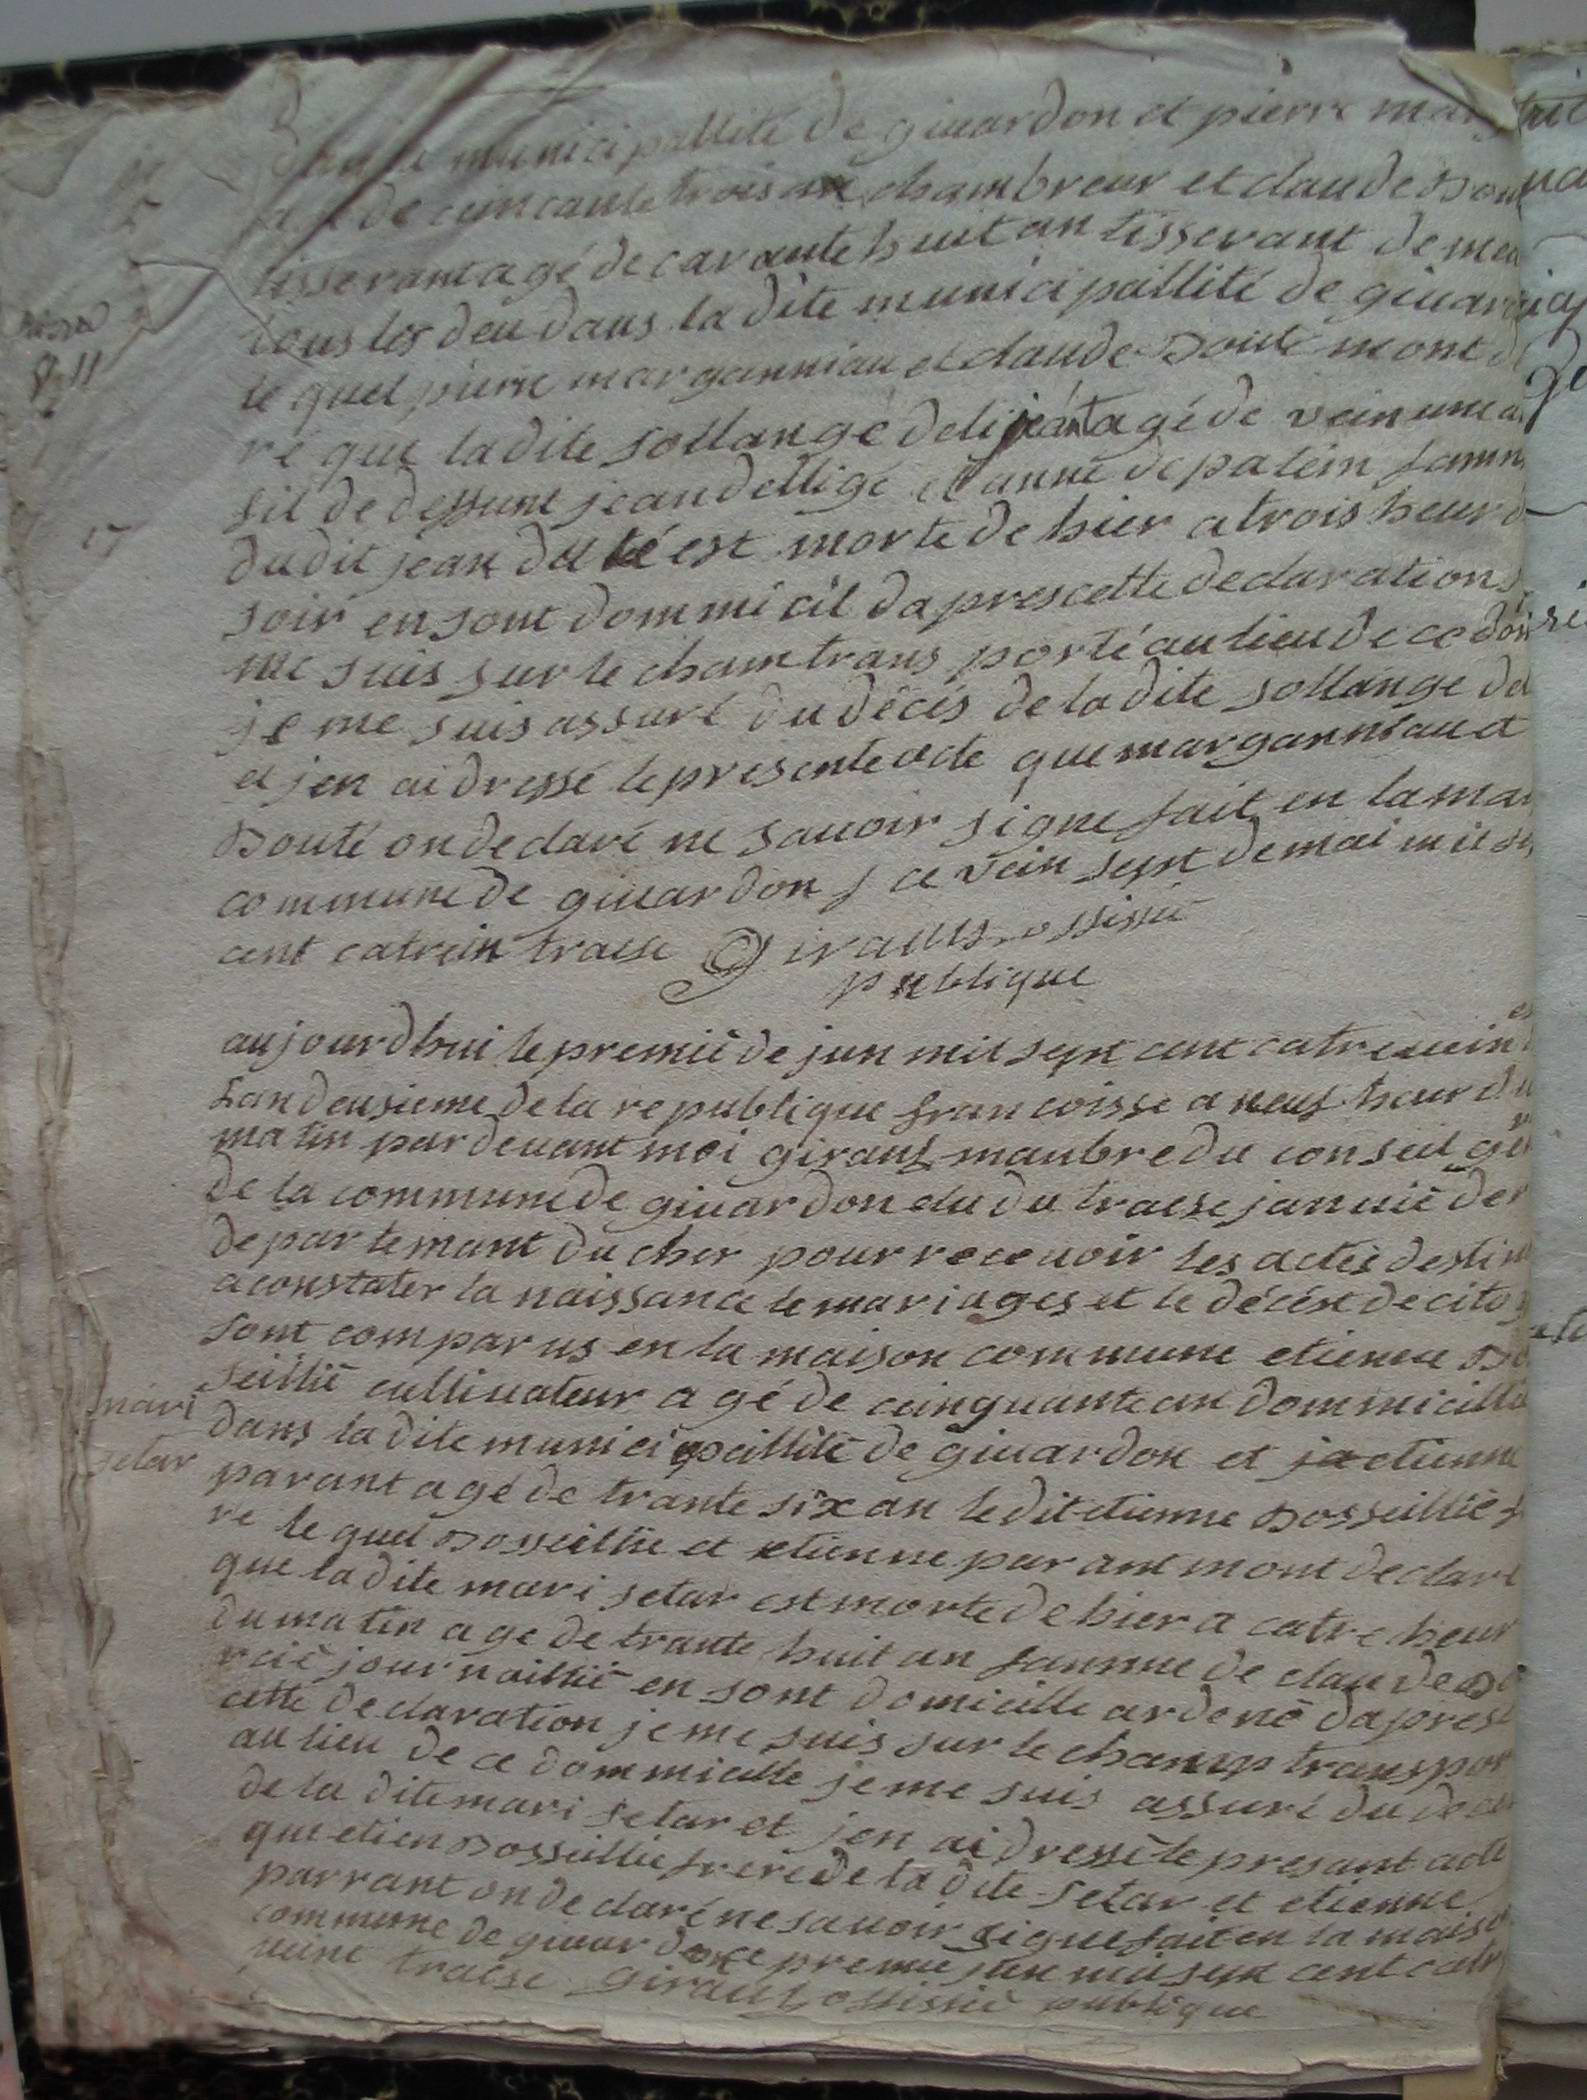 municipallité de giuardon et pierre mar
agé de cuin cante trois an chambreur et claude Dou
tisserant agé de carante huit an tisserant demeu
tous les deu dans la dite municipallité de giuar
le quel pierre marganniau et claude Douté mont de
ré que la dite sollange delijé agé de vein une a
fil de deffunt jean dellige et anne depatein famm
du dit jean du té est morte de hier a trois heur d
soir en sont dommicil da pres cette declaration je
me suis sur le cham trans porté au lieu de ce dom
je me suis assuré du décés de la dite sollange del
et jen ai dressé le present acte que marganniau et
Douté on declaré ne sauoir signe fait en la mai
commune de giuardon s ce vein sept de mai mil se
cent catrein traese Giraus ossissiè
publique
aujourdhui le premiè de jun mil sept cent catreuein
Lan deusieme de la republique francoisse a neuf heur du
matin par deuant moi giraus manbre du conseil gen
de la commune de giuardon elu du traese januiè der
departemant du cher pour receuoir les actes destin
a constater la naissance le mariages et le décést de cito
sont comparus en la maison commune etienne Do
seilliè cultiuateur agé de cuinquante an dommicillié
dans la dite municipallité de giuardon et etienne
parant agé de trante six an le dit etienne Dosseilliè f
re le quel Dosseillie et etienne parant mont declaré
que la dite mari setar est morte de hier a catre heur
du matin age de trante huit an famme de claude
rciè journailliè en sont domicille ardenè dapres
cette declaration je me suis sur le champ transpor
au lieu de ce dommicille je me suis assuré du dece
de la dite mari setar et jen ai dressè le presant acte
que etien Dosseillie frere de la dite setar et etienne
parrant on declaré ne sauoir signe fait en la maiso
commune de giuardon ce premie jun mil sept cent catr
ueint traese giraus ossissiè publique
mari
setar